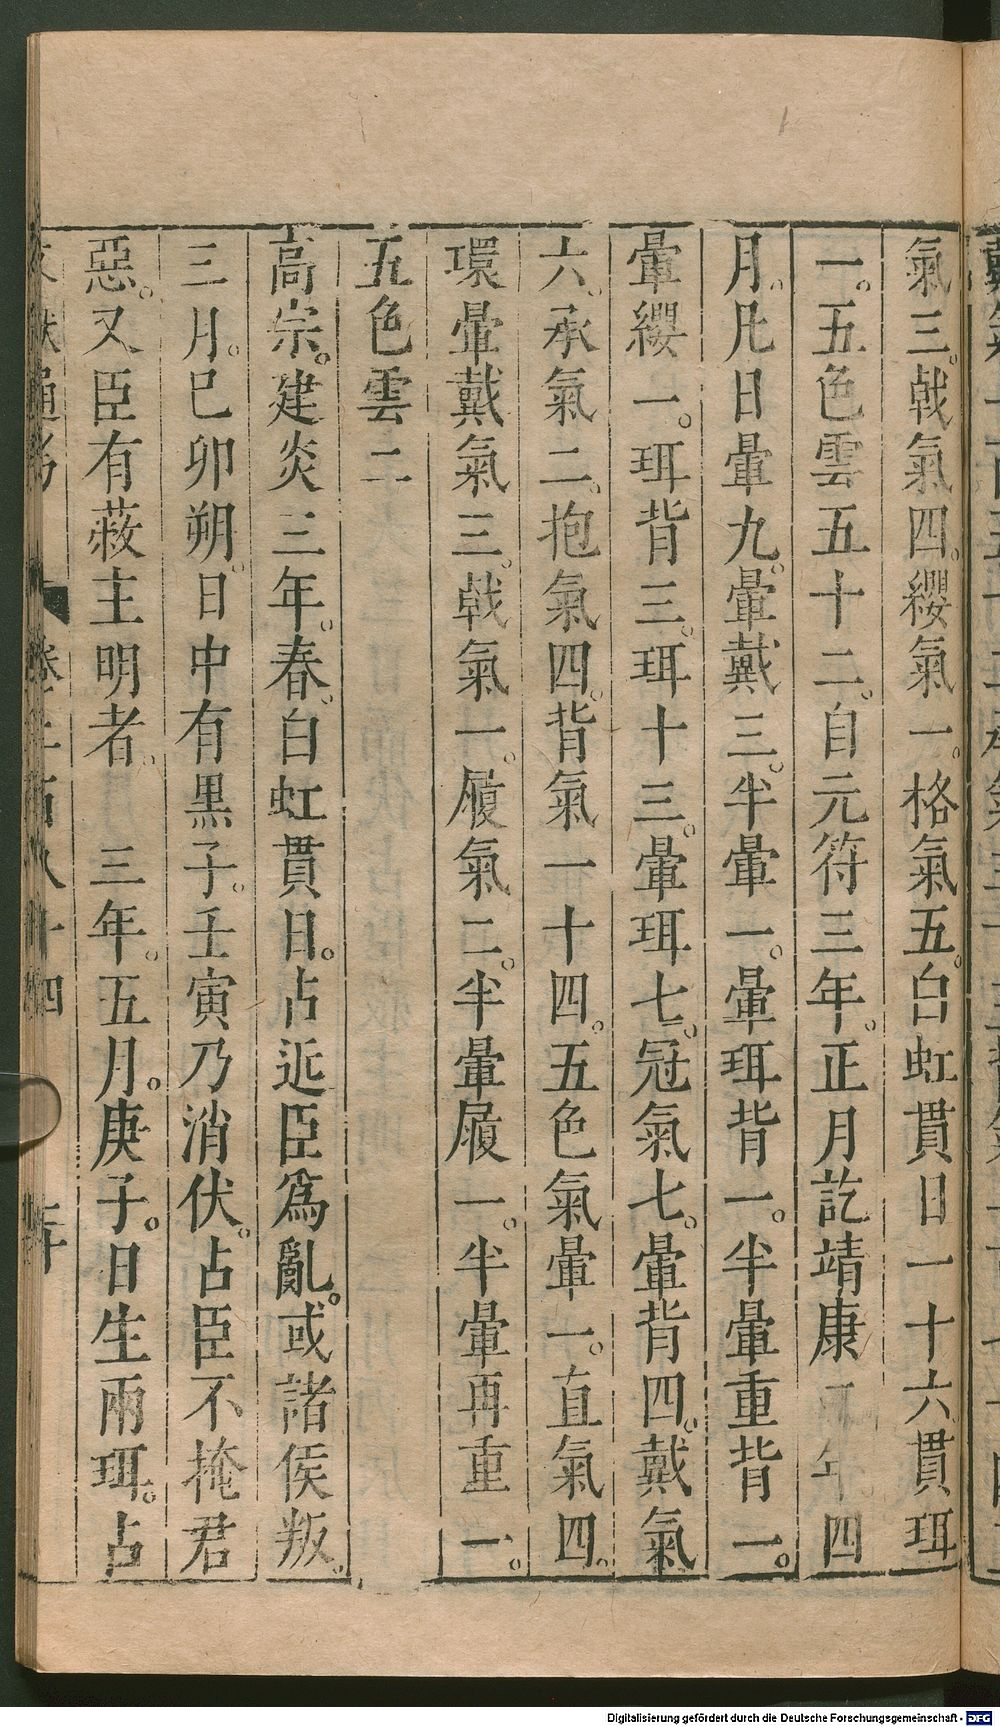 氣三。戟氣四。纓氣一。格氣五。白虹貫日一十六。貫珥
一。五色雲五十二。自元符三年。正月訖靖康 年四
月。凡日暈九。暈戴三。半暈一。暈珥背一。半暈重背一。
暈纓一。珥背三。珥十三。暈珥七。冠氣七。暈背四。戴氣
六。承氣二。抱氣四。背氣一十四。五色氣暈一。直氣四。
環暈戴氣三。戟氣一。履氣二。半暈履一。半暈再重一。
五色雲二
高宗。建炎三年。春。白虹貫日。占近臣爲亂。或諸侯叛。
三月。己卯朔。日中有黑子。壬寅乃消伏。占臣不掩君
惡。又臣有蔽主明者。三年。五月。庚子。日生兩珥。占
卷二百八十四
Digitalisierung gefördert durch die Deutsche Forschungsgemeinschaft - DFG